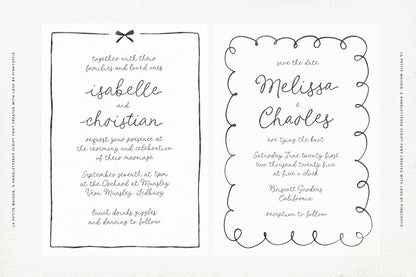 together with their
families and loved ones
isabelle
and
christian
request your presence at
the ceremony and celebration
of their marriage
September seventh, at 5pm
at the Orchard at Munsley
Vern Munsley, Ledbury
lunch drinks giggles
and dancing to follow
save the date
Melissa
&
Charles
are tying the knot
Saturday June twenty first
two thousand twenty five
at five o'clock
Briscott Gardens
California
reception to follow
LA PETITE MAISON, A HANDLETTERED SCRIPT FONT CREATED WITH LOVE BY
LA PETITE MAISON, A HANDLETTERED SCRIPT FONT CREATED WITH LOVE BY